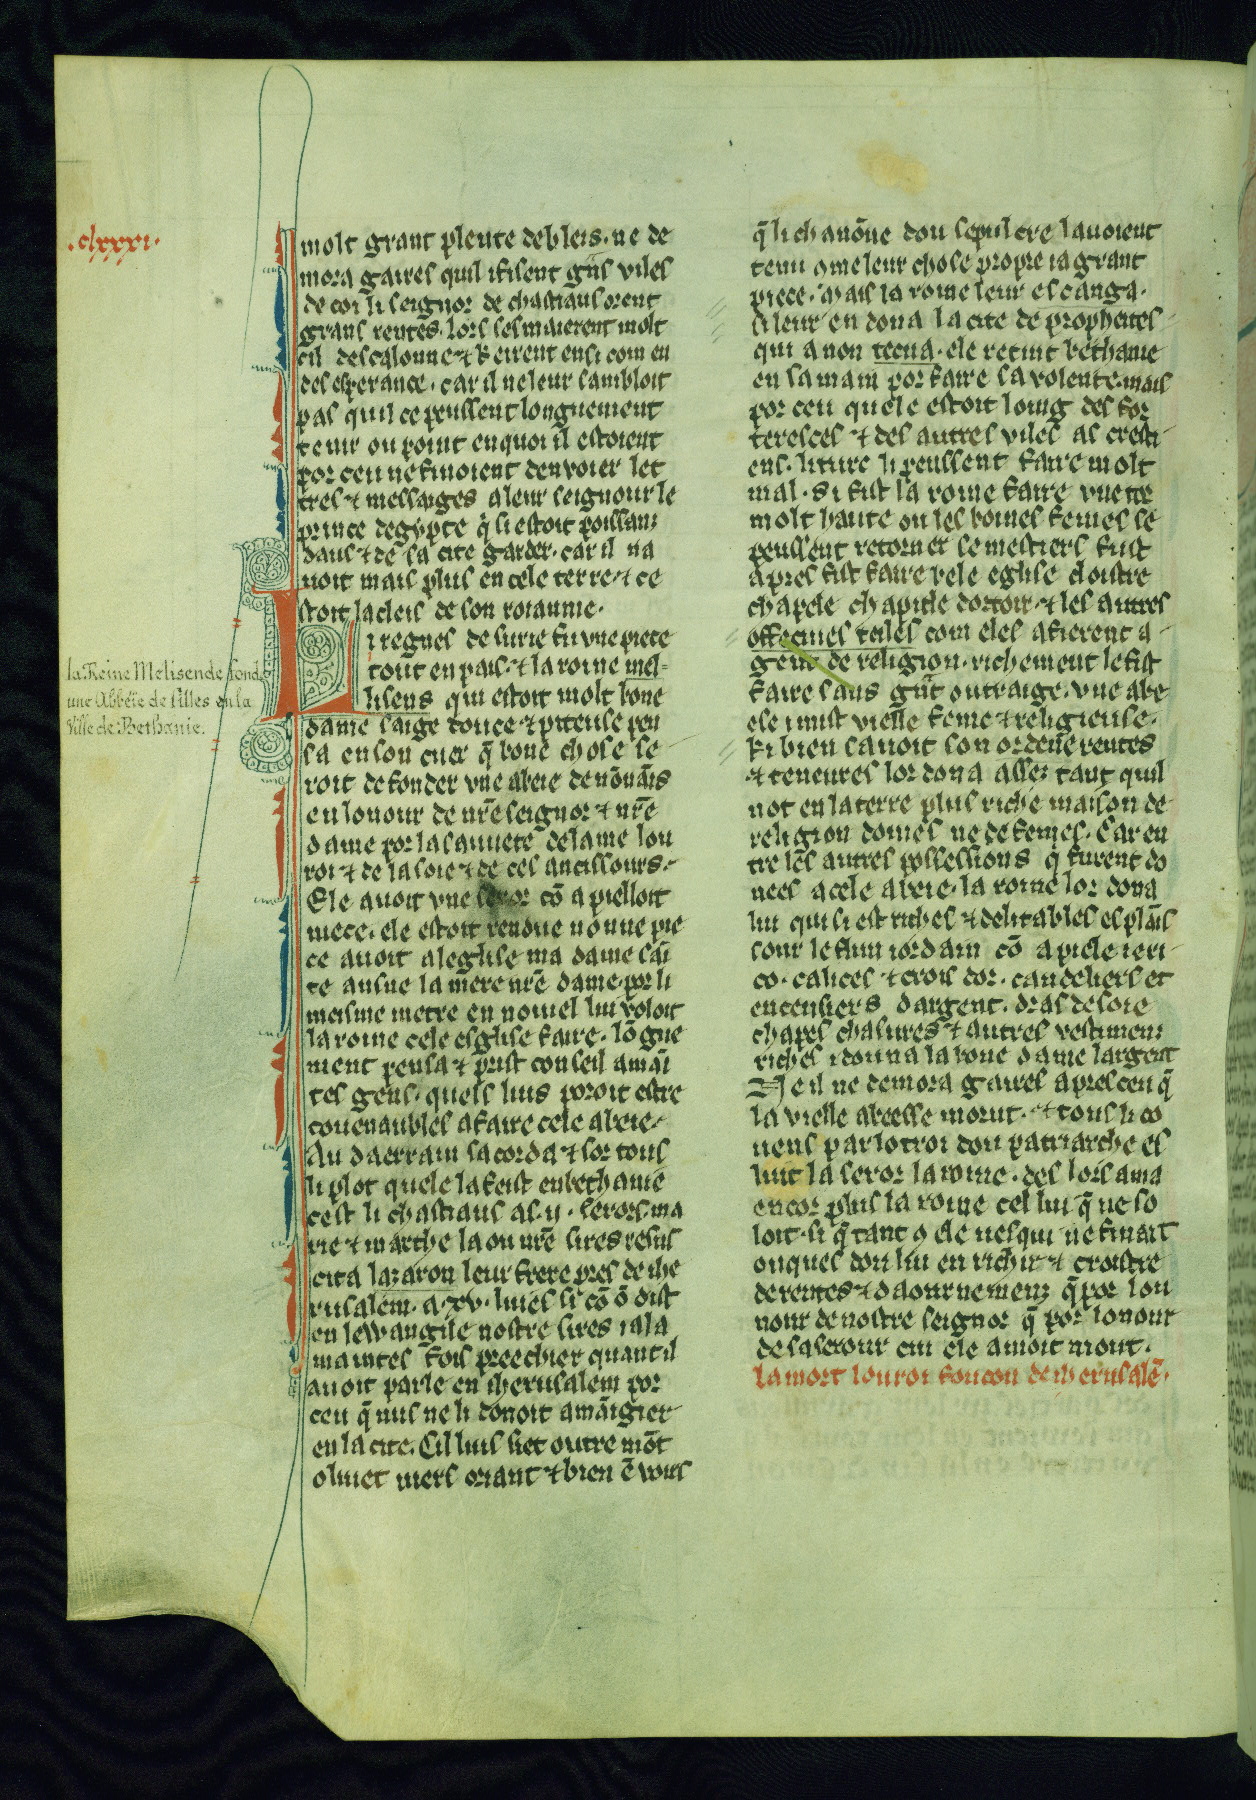 .clxxxi.
molt grant plente de bleis. ne de
mora gaires quil ifisent gñs viles
de coi li seignor de chastiaus orent
grans rentes. lors sesmaierent molt
cil descalonne ⁊ keirent ensi com en
desesperance. car il ne leur sambloit
pas quil ce peussent longuement
tenir ou point en quoi il estoient
por ceu ne finoient denvoier let
tres ⁊ messaiges a leur seignour le
prince degypte q̄ li estoit poissanz
dans ⁊ de sa cite garder. car il na
uoit mais plus en cele terre ⁊ ce
stoit la cleis de son roiaume.
Li regnes de surie fu vne piece
tout en pais. ⁊ la roine mel=
lisens qui estoit molt bone
dame saige douce ⁊ piteuse pen
sa en son cuer q̄ bone chose se
roit de fonder vne abeie de nōnāis
en lonour de nr̄e seignor ⁊ nr̄e
dame por la sauuete de lame lou
roi ⁊ de la soie ⁊ de ces ancissours.
Ele auoit vne seror cō apielloit
iuece. ele estoit rendue nonne pie
ce auoit a leglise ma dame sāi
te ansne la mere nr̄e dame. por li
meisme metre en nouuel liu voloit
la roine cele esglise faire. lōgue
ment pensa ⁊ prist conseil a māi
tes gens. quels luis poroit estre
couenaubles a faire cele abeie.
Au daerrain sacorda ⁊ sor tous
li plot quele la feist en bethanie
cest li chastiaus as .ij. serors. ma
rie ⁊ marthe la ou nr̄e sires resus
cita lazaron leur frere pres de ihe
rusalem. a .xv. luies si cō ō dist
en lewangile nostre sires i ala
maintes fois preechier quant il
auoit parle en iherusalem por
ceu q̄ nus ne li donoit a māigier
en la cite. Cil luis siet outre mōt
oliuet uiers oriant ⁊ bien ē vous
la Reine Melisende fonde
une Abbéie de filles en la
Ville de Bethanie.
q̄ li chanōne dou sepulcre lauoient
tenu 9me leur chose propre ia grant
piece. mais la roine leur escanga.
si leur en dona la cite de prophetes
qui a non tecua. ele retint bethanie
en sa main por faire sa volente. mais
por ceu quele estoit loing des for
teresces ⁊ des autres viles as cresti
ens. li turc li peussent faire molt
mal. si fist la roine faire vne tor
molt haute ou les boines femes se
peussent retorner se mestiers fust
apres fist faire bele eglise cloistre
chapele chapitle dortoir. ⁊ les autres
offecines teiles com eles afierent a
gent de religion. richement le fist
faire sans gr̄t outraige. vne abe
ele i mist vielle feme ⁊ religieuse.
ki bien sauoit son ordene rentes
⁊ teneures lor dona assez tant quil
not en la terre plus riche maison de
religion domes ne de femes. Car en
tre les autres possessions q̄ furent do
nees a cele abeie. la roine lor dona
liu qui si est riches ⁊ delitables es plāis
sour le flun iordain cō apiele ieri
co. calices ⁊ crois dor. candeliers et
encensiers dargent. dras de soie
chapes chasures ⁊ autres vestimenz
riches i donna la bone dame largent
Ne il ne demora gaires apres ceu q̄
la vielle abeesse morut. ⁊ tous li co
uens par lotroi dou patriarche es
luit la seror la roine. des lors ama
encor plus la roine cel liu q̄ ne so
loit. si q̄ tant 9 ele uesqui ne finait
onques dou liu enrichir ⁊ croistre
de rentes ⁊ daournemenz q̄ por lou
nour de nostre seignor q̄ por lonour
de sa serour cui ele amoit mont.
la mort lou roi foucon de iherusalē.